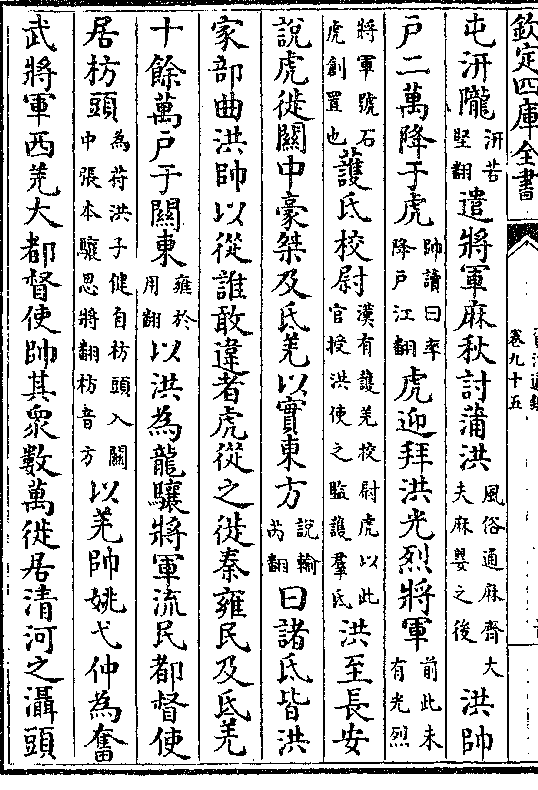 欽定四庫全書
卷九十五
屯汧隴汧苦堅翻遣將軍麻秋討蒲洪風俗通麻齊大夫麻嬰之後洪帥
戶二萬降于虎帥讀曰率降戶江翻虎迎拜洪光烈將軍前此未有光烈
將軍號石虎創置也護氐校尉漢有護羌校尉虎以此官授洪使之監護羣氐洪至長安
說虎徙關中豪桀及氐羌以實東方說輸芮翻曰諸氐皆洪
家部曲洪帥以從誰敢違者虎從之徙秦雍民及氐羌
十餘萬戶于關東雍於用翻以洪為龍驤將軍流民都督使
居枋頭為苻洪子健自枋頭入關中張本驤思將翻枋音方以羌帥姚弋仲為奮
武將軍西羌大都督使帥其衆數萬徙居清河之灄頭